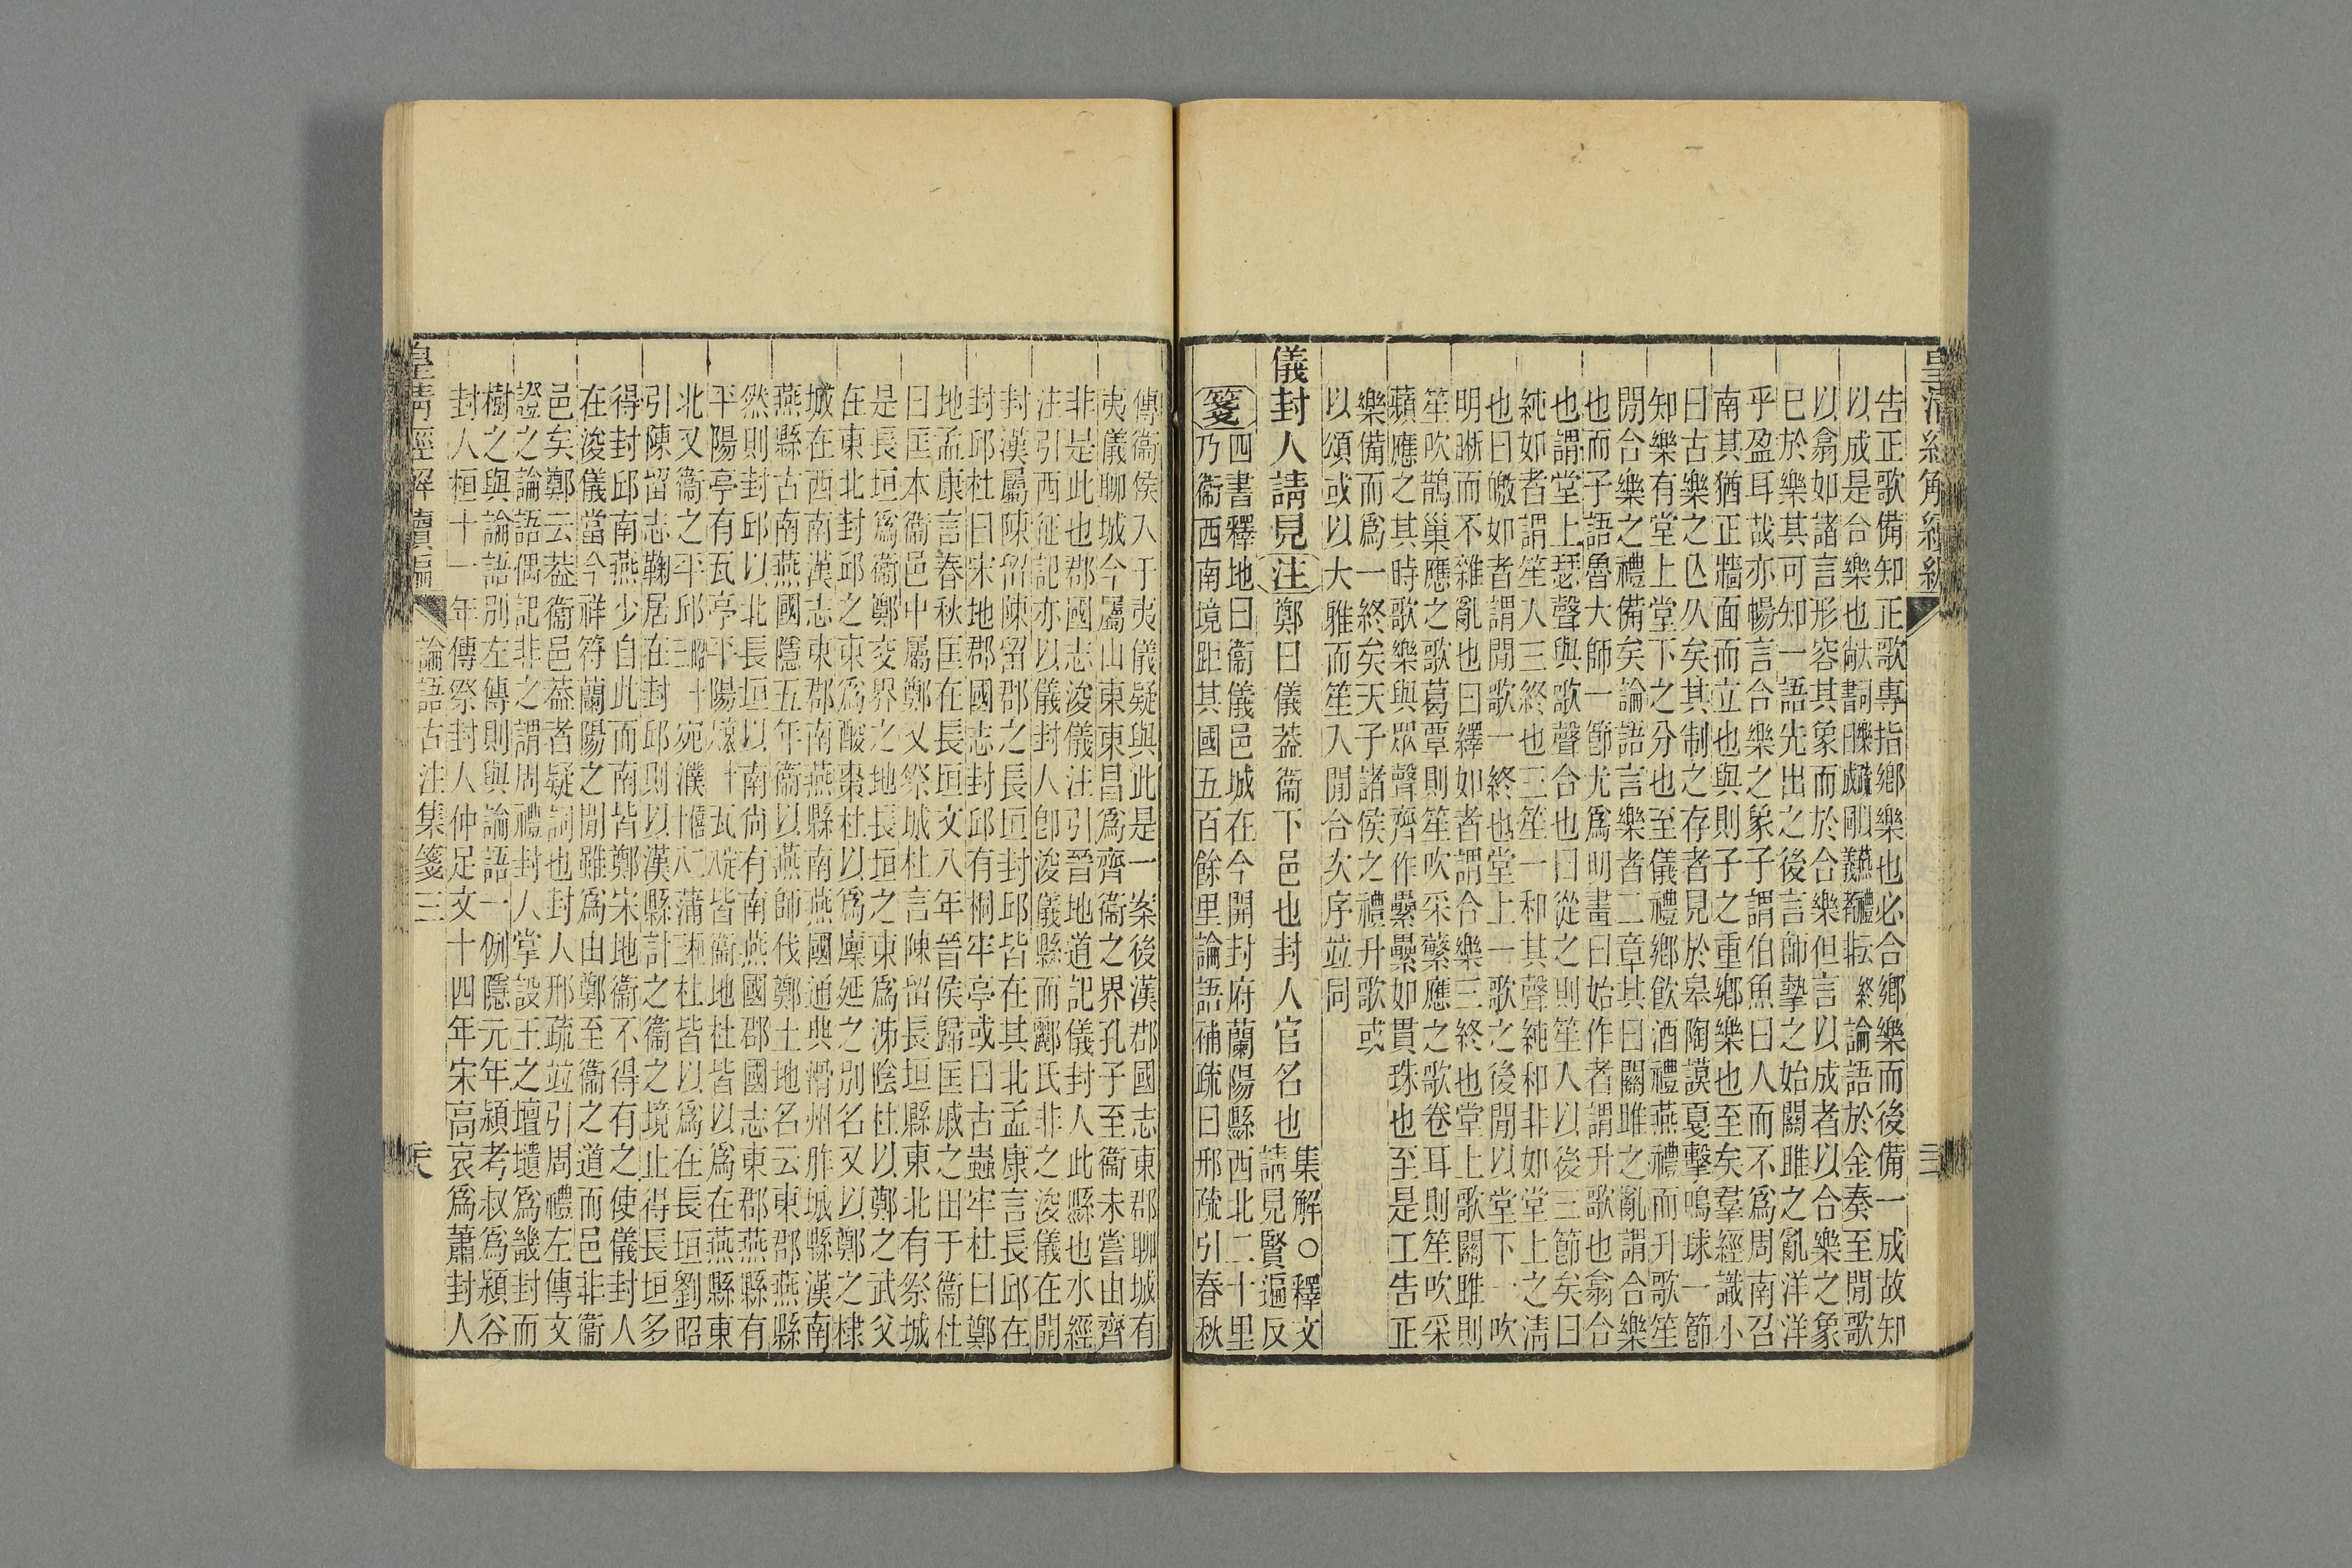 告正歌備知正歌專指鄉樂也必合鄉樂而後備一成故知
以成是合樂也論語於金奏至閒歌
以翕如諸言形容其象而於合樂但言以成者以合樂之象
巳於樂其可知一語先出之後言師摯之始關雎之亂洋洋
乎盈耳哉亦暢言合樂之象子謂伯魚曰人而不為周南召
南其猶正牆面而立也與則子之重鄉樂也至矣羣經識小
曰古樂之亾久矣其制之存者見於皋陶謨戞擊鳴球一節
知樂有堂上堂下之分也至儀禮鄉飮酒禮燕禮而升歌笙
閒合樂之禮備矣論語言樂者二章其曰關雎之亂謂合樂
也而子語魯大師一節尤爲明畫曰始作者謂升歌也翕合
也謂堂上瑟聲與歌聲合也曰從之則笙人以後三節矣曰
純如者謂笙入三終也三笙一和其聲純和非如堂上之淸
也曰皦如者謂閒歌一終也堂上一歌之後閒以堂下一吹
明晰而不雜亂也曰繹如者謂合樂三終也堂上歌關雎則
笙吹鵲巢應之歌葛覃則笙吹采蘩應之歌卷耳則笙吹采
蘋應之其時歌樂與眾聲齊作纍纍如貫珠也至是工告正
樂備而爲一終矣天子諸侯之禮升歌或
以頌或以大雅而笙入閒合次序竝同
儀封人請見注鄭曰儀葢衞下邑也封人官名也集解○釋文
請見賢遍反
箋四書釋地曰衞儀邑城在今開封府蘭陽縣西北二十里
乃衞西南境距其國五百餘里論語補疏曰邢疏引春秋
傳衞侯入于夷儀疑與此是一案後漢郡國志東郡聊城有
夷儀聊城今屬山東東昌爲齊衞之界孔子至衞未嘗由齊
非是此也郡國志浚儀注引晉地道記儀封人此縣也水經
注引西征記亦以儀封人卽浚儀縣而酈氏非之浚儀在開
封漢屬陳留陳留郡之長垣封邱皆在其北孟康言長邱在
封邱杜曰宋地郡國志封邱有桐牢亭或曰古蟲牢杜曰鄭
地孟康言春秋匡在長垣文八年晉侯歸匡戚之田于衞杜
曰匡本衞邑中屬鄭又祭城杜言陳留長垣縣東北有祭城
是長垣爲衞鄭交界之地長垣之東爲沛陰杜以鄭之武父
在東北封邱之東爲酸棗杜以爲廩延之別名又以鄭之棣
城在西南漢志東郡南燕縣南燕國通典滑州胙城縣漢南
燕縣古南燕國隱五年衞以燕師伐鄭土地名云東郡燕縣
然則封邱以北長垣以南尙有南燕國郡國志東郡燕縣有
平陽亭有瓦亭平陽瓦皆衞地杜皆以爲在燕縣東
北又衞之平邱宛濮蒲杜皆以爲在長垣劉昭
引陳留志鞠居在封邱則以漢縣計之衞之境止得長垣多
得封邱南燕少自此而南皆鄭宋地衞不得有之使儀封人
在浚儀當今祥符蘭陽之閒雖爲由鄭至衞之道而邑非衞
邑矣鄭云葢衞邑葢者疑詞也封人邢疏竝引周禮左傳文
證之論語偶記非之謂周禮封人掌設王之壇壝爲畿封而
樹之與論語別左傳則與論語一例隱元年潁考叔爲潁谷
封人桓十一年傳祭封人仲足文十四年宋高哀爲蕭封人
論語古注集箋三